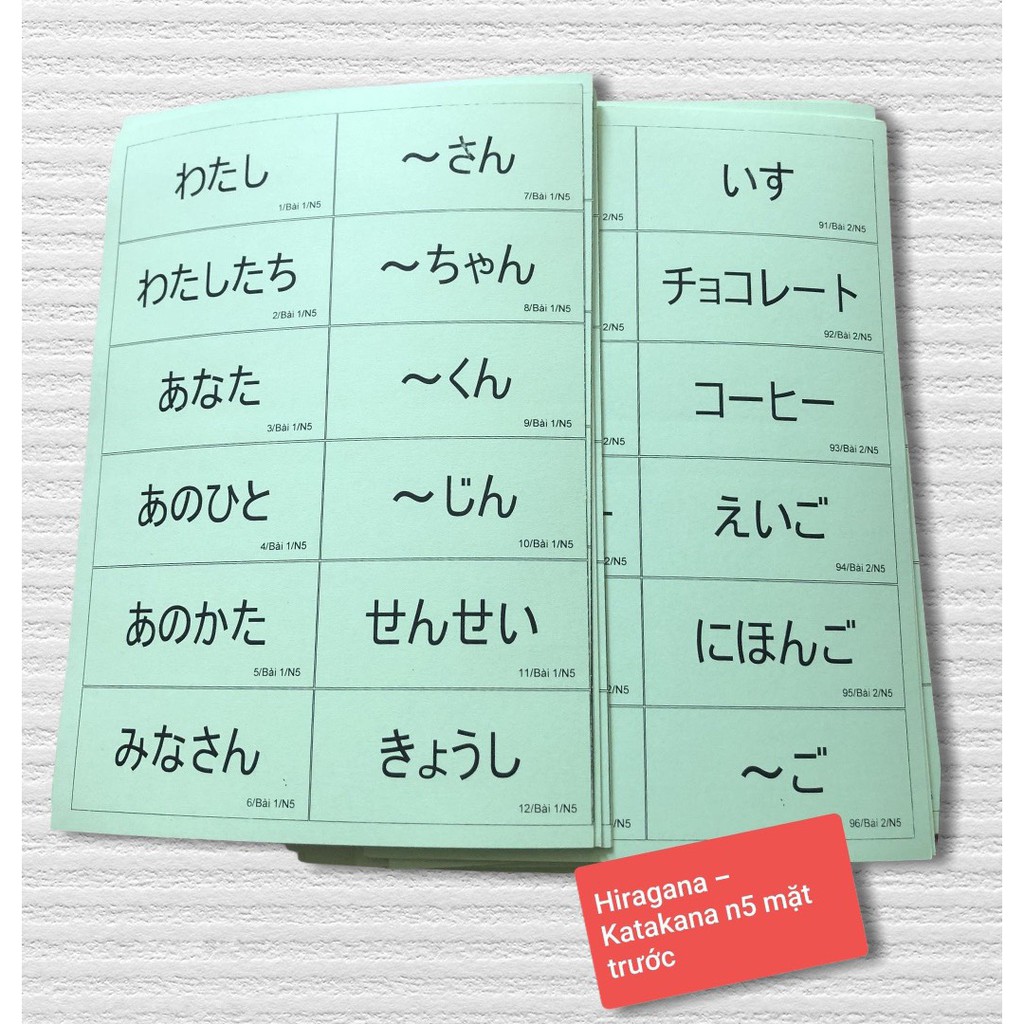 わたし
1/Bài 1/N5
〜さん
7/Bài 1/N5
わたしたち
2/Bài 1/N5
〜ちゃん
8/Bài 1/N5
あなた
3/Bài 1/N5
〜くん
9/Bài 1/N5
あのひと
4/Bài 1/N5
〜じん
10/Bài 1/N5
あのかた
5/Bài 1/N5
せんせい
11/Bài 1/N5
みなさん
6/Bài 1/N5
きょうし
12/Bài 1/N5
2/N5
いす
91/Bài 2/N5
2/N5
チョコレート
92/Bài 2/N5
2/N5
コーヒー
93/Bài 2/N5
2/N5
えいご
94/Bài 2/N5
2/N5
にほんご
95/Bài 2/N5
/N5
〜ご
96/Bài 2/N5
Hiragana –
Katakana n5 mặt
trước